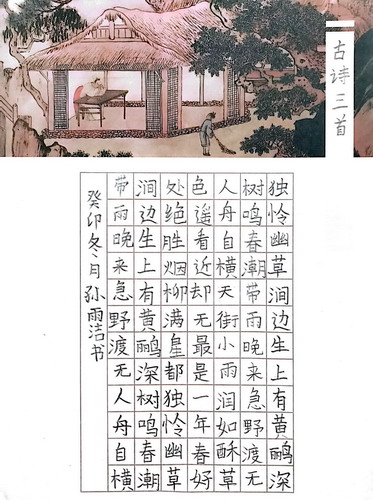 古诗三首
独怜幽草涧边生上有黄鹂深
树鸣春潮带雨晚来急野渡无
人舟自横天街小雨润如酥草
色遥看近却无最是一年春好
处绝胜烟柳满皇都独怜幽草
涧边生上有黄鹂深树鸣春潮
带雨晚来急野渡无人舟自横
癸卯冬月孙雨洁书